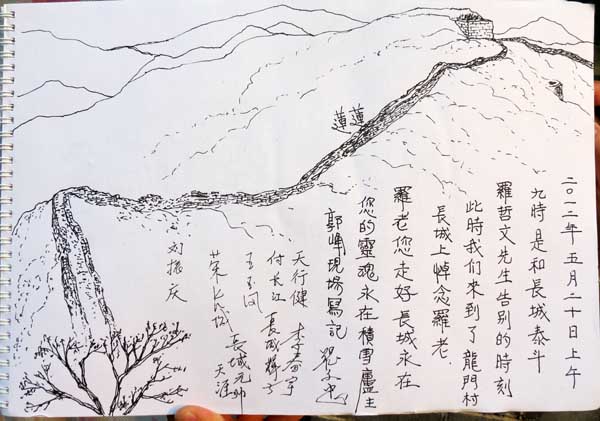 二〇一二年五月二十日上午
九時是和長城泰斗
羅哲文先生告别的時刻
此時我们來到了龍門村
長城上悼念羅老
羅老您走好長城永在
您的靈魂永在積雪廬主
郭峰現場寫記
蓮蓮
天行健 李春宇
付長江
王玉同
長城元帅
天涯
刘振庆